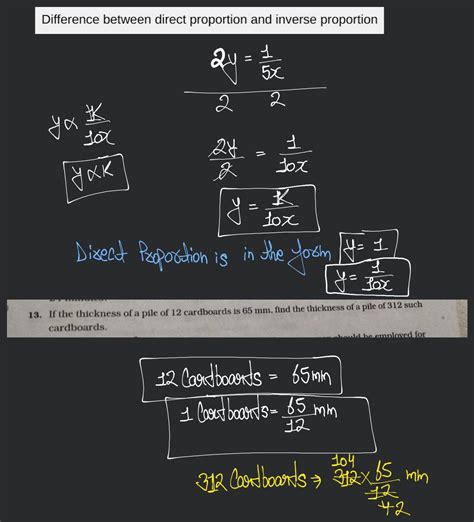 Difference between direct proportion and inverse proportion
2y = 1/5x
2 2
y ∝ K/10x
2y/2 = 1/10x
y ∝ K
y = K/10x
Direct Proportion is in the form y = 1
y = 1/10x
13. If the thickness of a pile of 12 cardboards is 65 mm, find the thickness of a pile of 312 such
cardboards.
should be employed for
12 Cardboards = 65mm
1 Cardboards = 65/12 mm
312 Cardboards → 104 312 × 65/12 mm
42